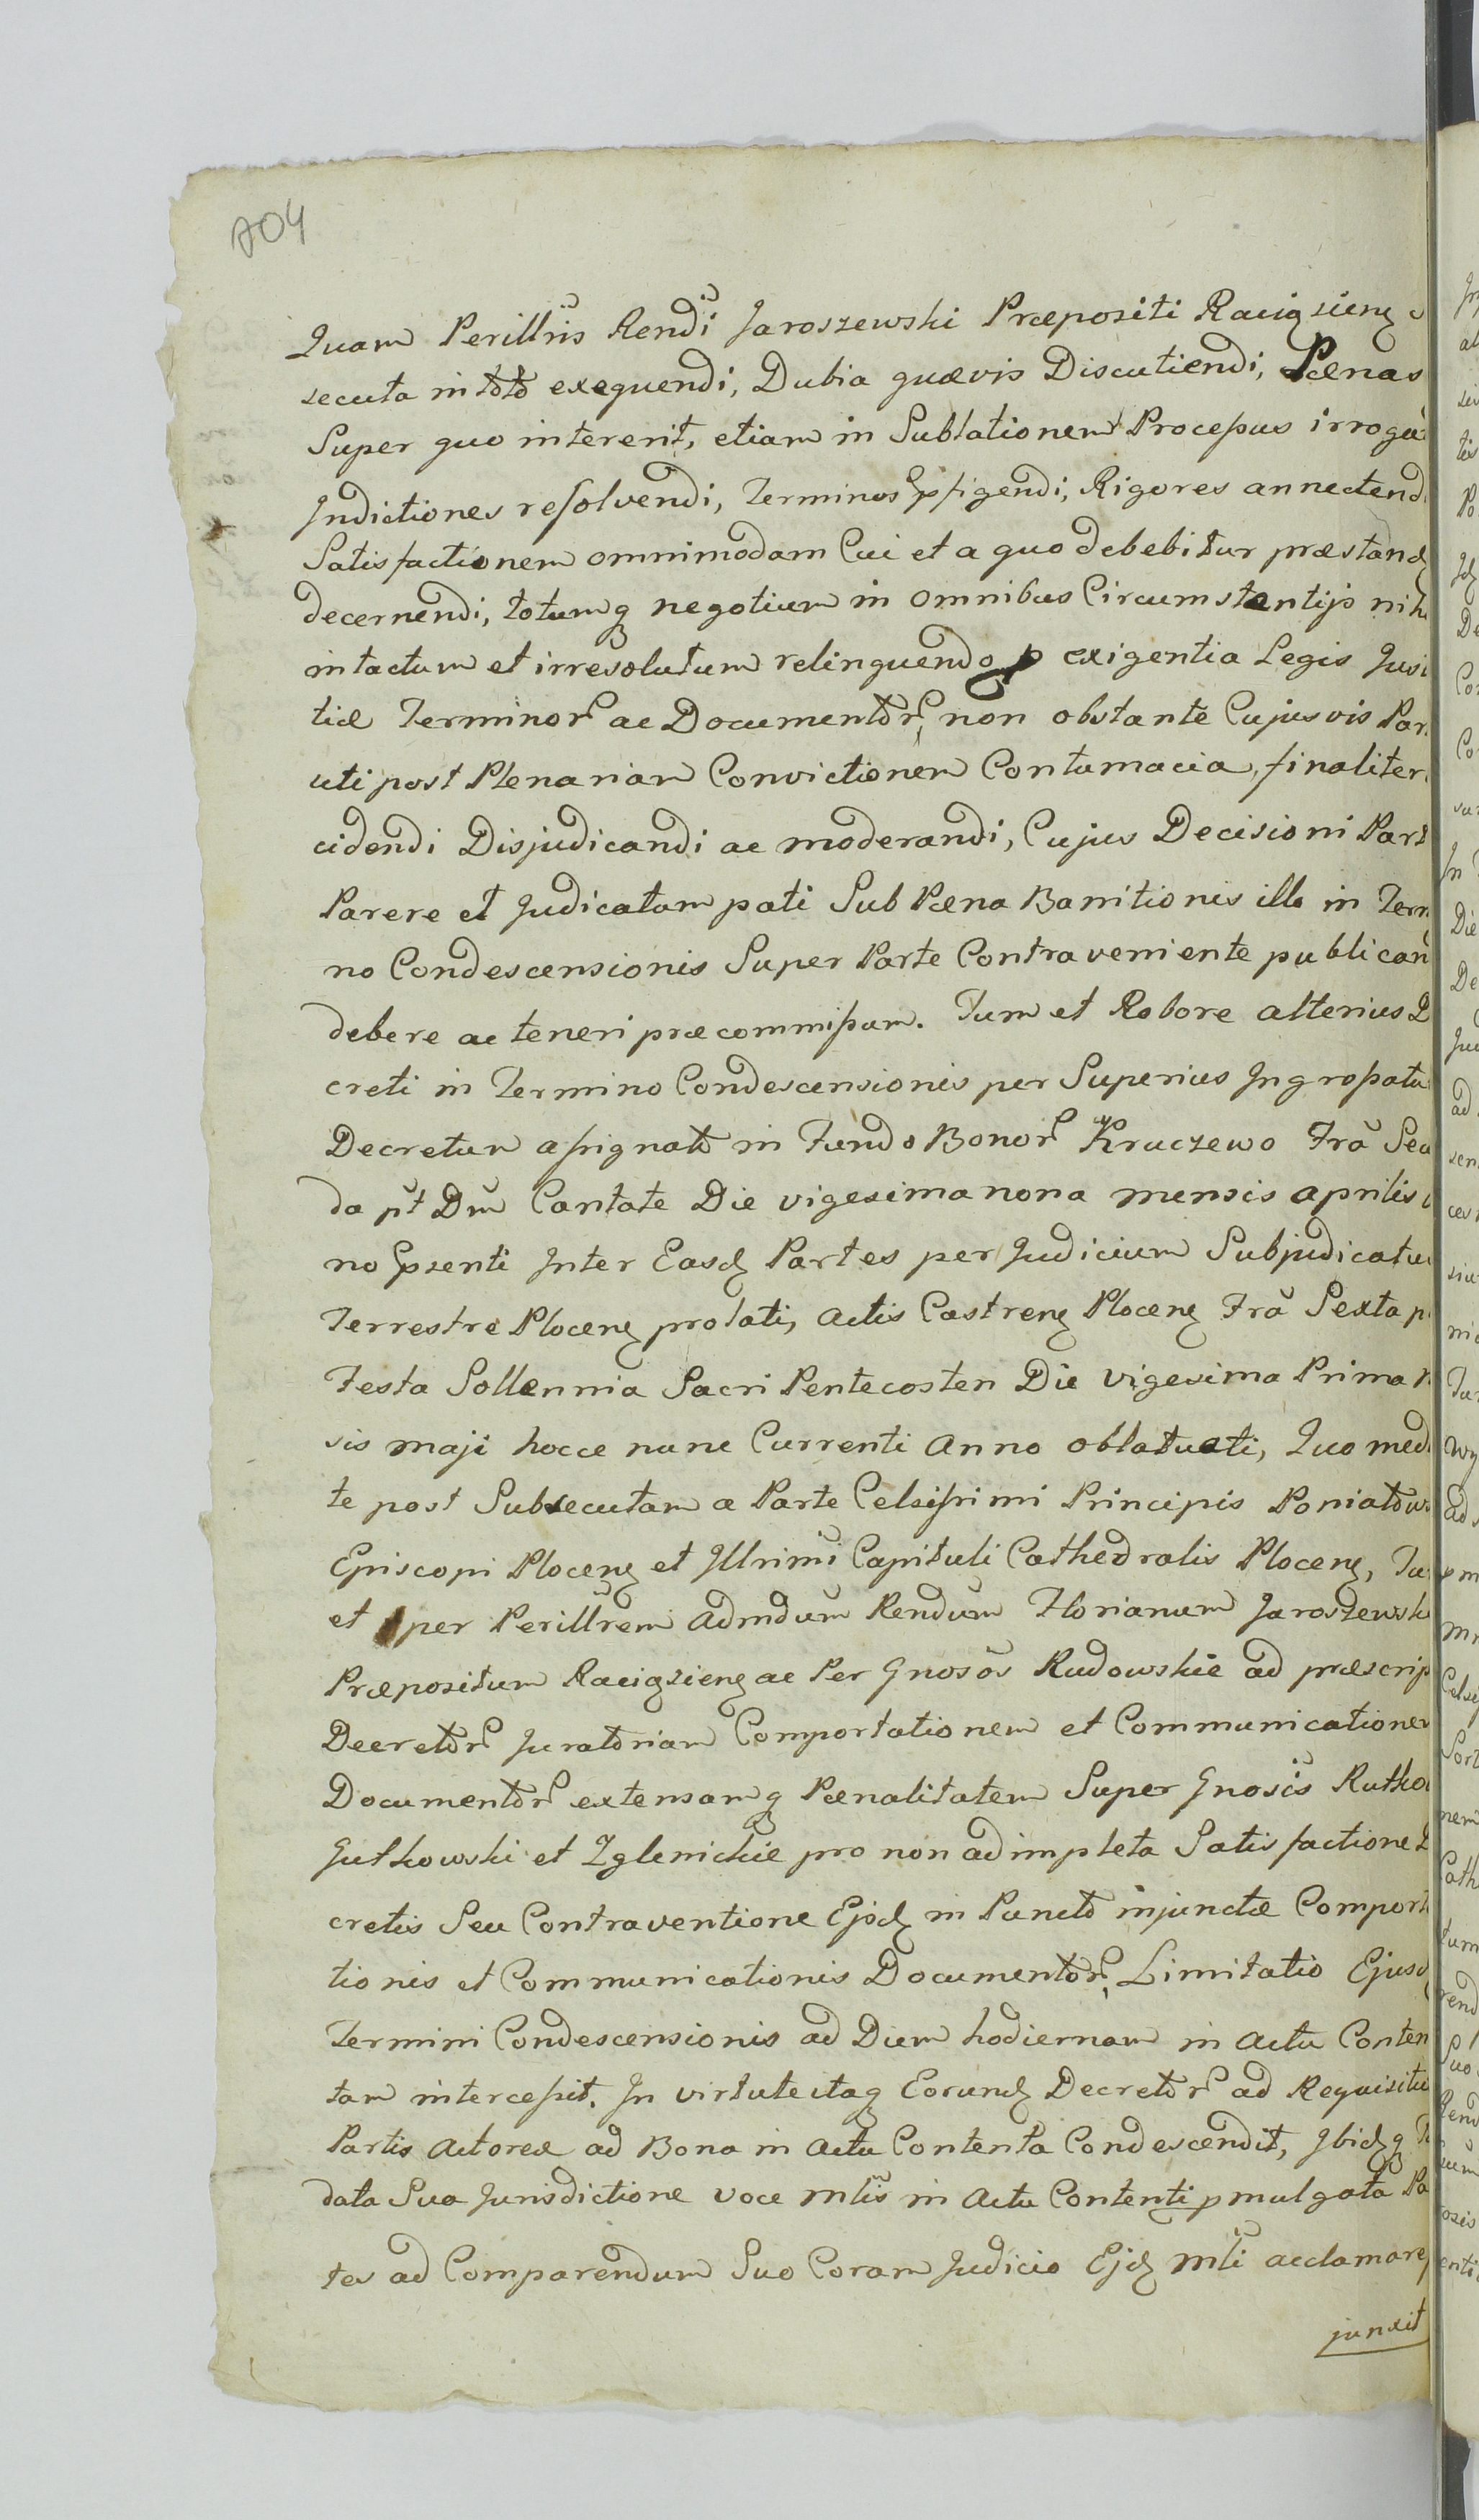 704
Quam Perillris Rendi Jaroszewski Præpositi Raciązien
secuta in toto exequendi, Dubia quævis Discutiendi, Pœnas
Super quo intererit, etiam in Sublationem Processus irroga
Indictiones resolvendi, Terminos pfigendi, Rigores annectend
Satisfactionem omnimodam Cui et a quo debebitur præstand
decernendi, totumq negotium in omnibus Circumstantijs nih
intactum et irresolutum relinquendo p exigentia Legis Jus
tiæ Terminor ac Documentor, non obstante Cujusvis Par
uti post Plenariam Convictionem Contumacia, finaliter
cidendi Disjudicandi ac moderandi, Cujus Decisioni Part
Parere et Judicatum pati Sub Pœna Banitionis illo in Term
no Condescensionis Super Parte Contraveniente publican
debere ac teneri præcommissum. Tum et Robore alterius D
creti in Termino Condescensionis per Superius Ingrossatu
Decretum assignato in Fundo Bonor Kruczewo Fra Secu
da pt Dm Cantate Die vigesima nona mensis aprilis
no psenti Inter Easd Partes per Judicium Subjudicatu
Terrestre Plocen prolati, actis Castren Plocen Fra Sexta p
Festa Sollennia Sacri Pentecosten Die vigesima Prima
sis maji hocce nunc Currenti anno oblatuati, Quo med
te post Subsecutam a Parte Celsissimi Principis Poniatow
Episcopi Plocen et Illrimi Capituli Cathedralis Plocen, Tu
et per Perillrem admdum Rendum Florianum Jaroszewsk
Præpositum Raciązien ac Per Gnosos Rudowskie ad præscrip
Decretor Juratoriam Comportationem et Communicationem
Documentor extensamq Pœnalitatem Super Gnosis Rutko
Gutkowski et Zglenickie pro non adimpleta Satisfactione D
cretis Seu Contraventione Ejsd in Puncto injunctæ Comport
tionis et Communicationis Documentor, Limitatio Ejusd
Termini Condescensionis ad Diem hodiernam in actu Conten
tam intercessit. In virtute itaq Eorund Decretor ad Requisitu
Partis actoreæ ad Bona in actu Contenta Condescendit, Ibidq
data Sua Jurisdictione voce mlis in actu Contenti pmulgata Pa
tes ad Comparendum Suo Coram Judicio Ejd mli acclamare
junxit